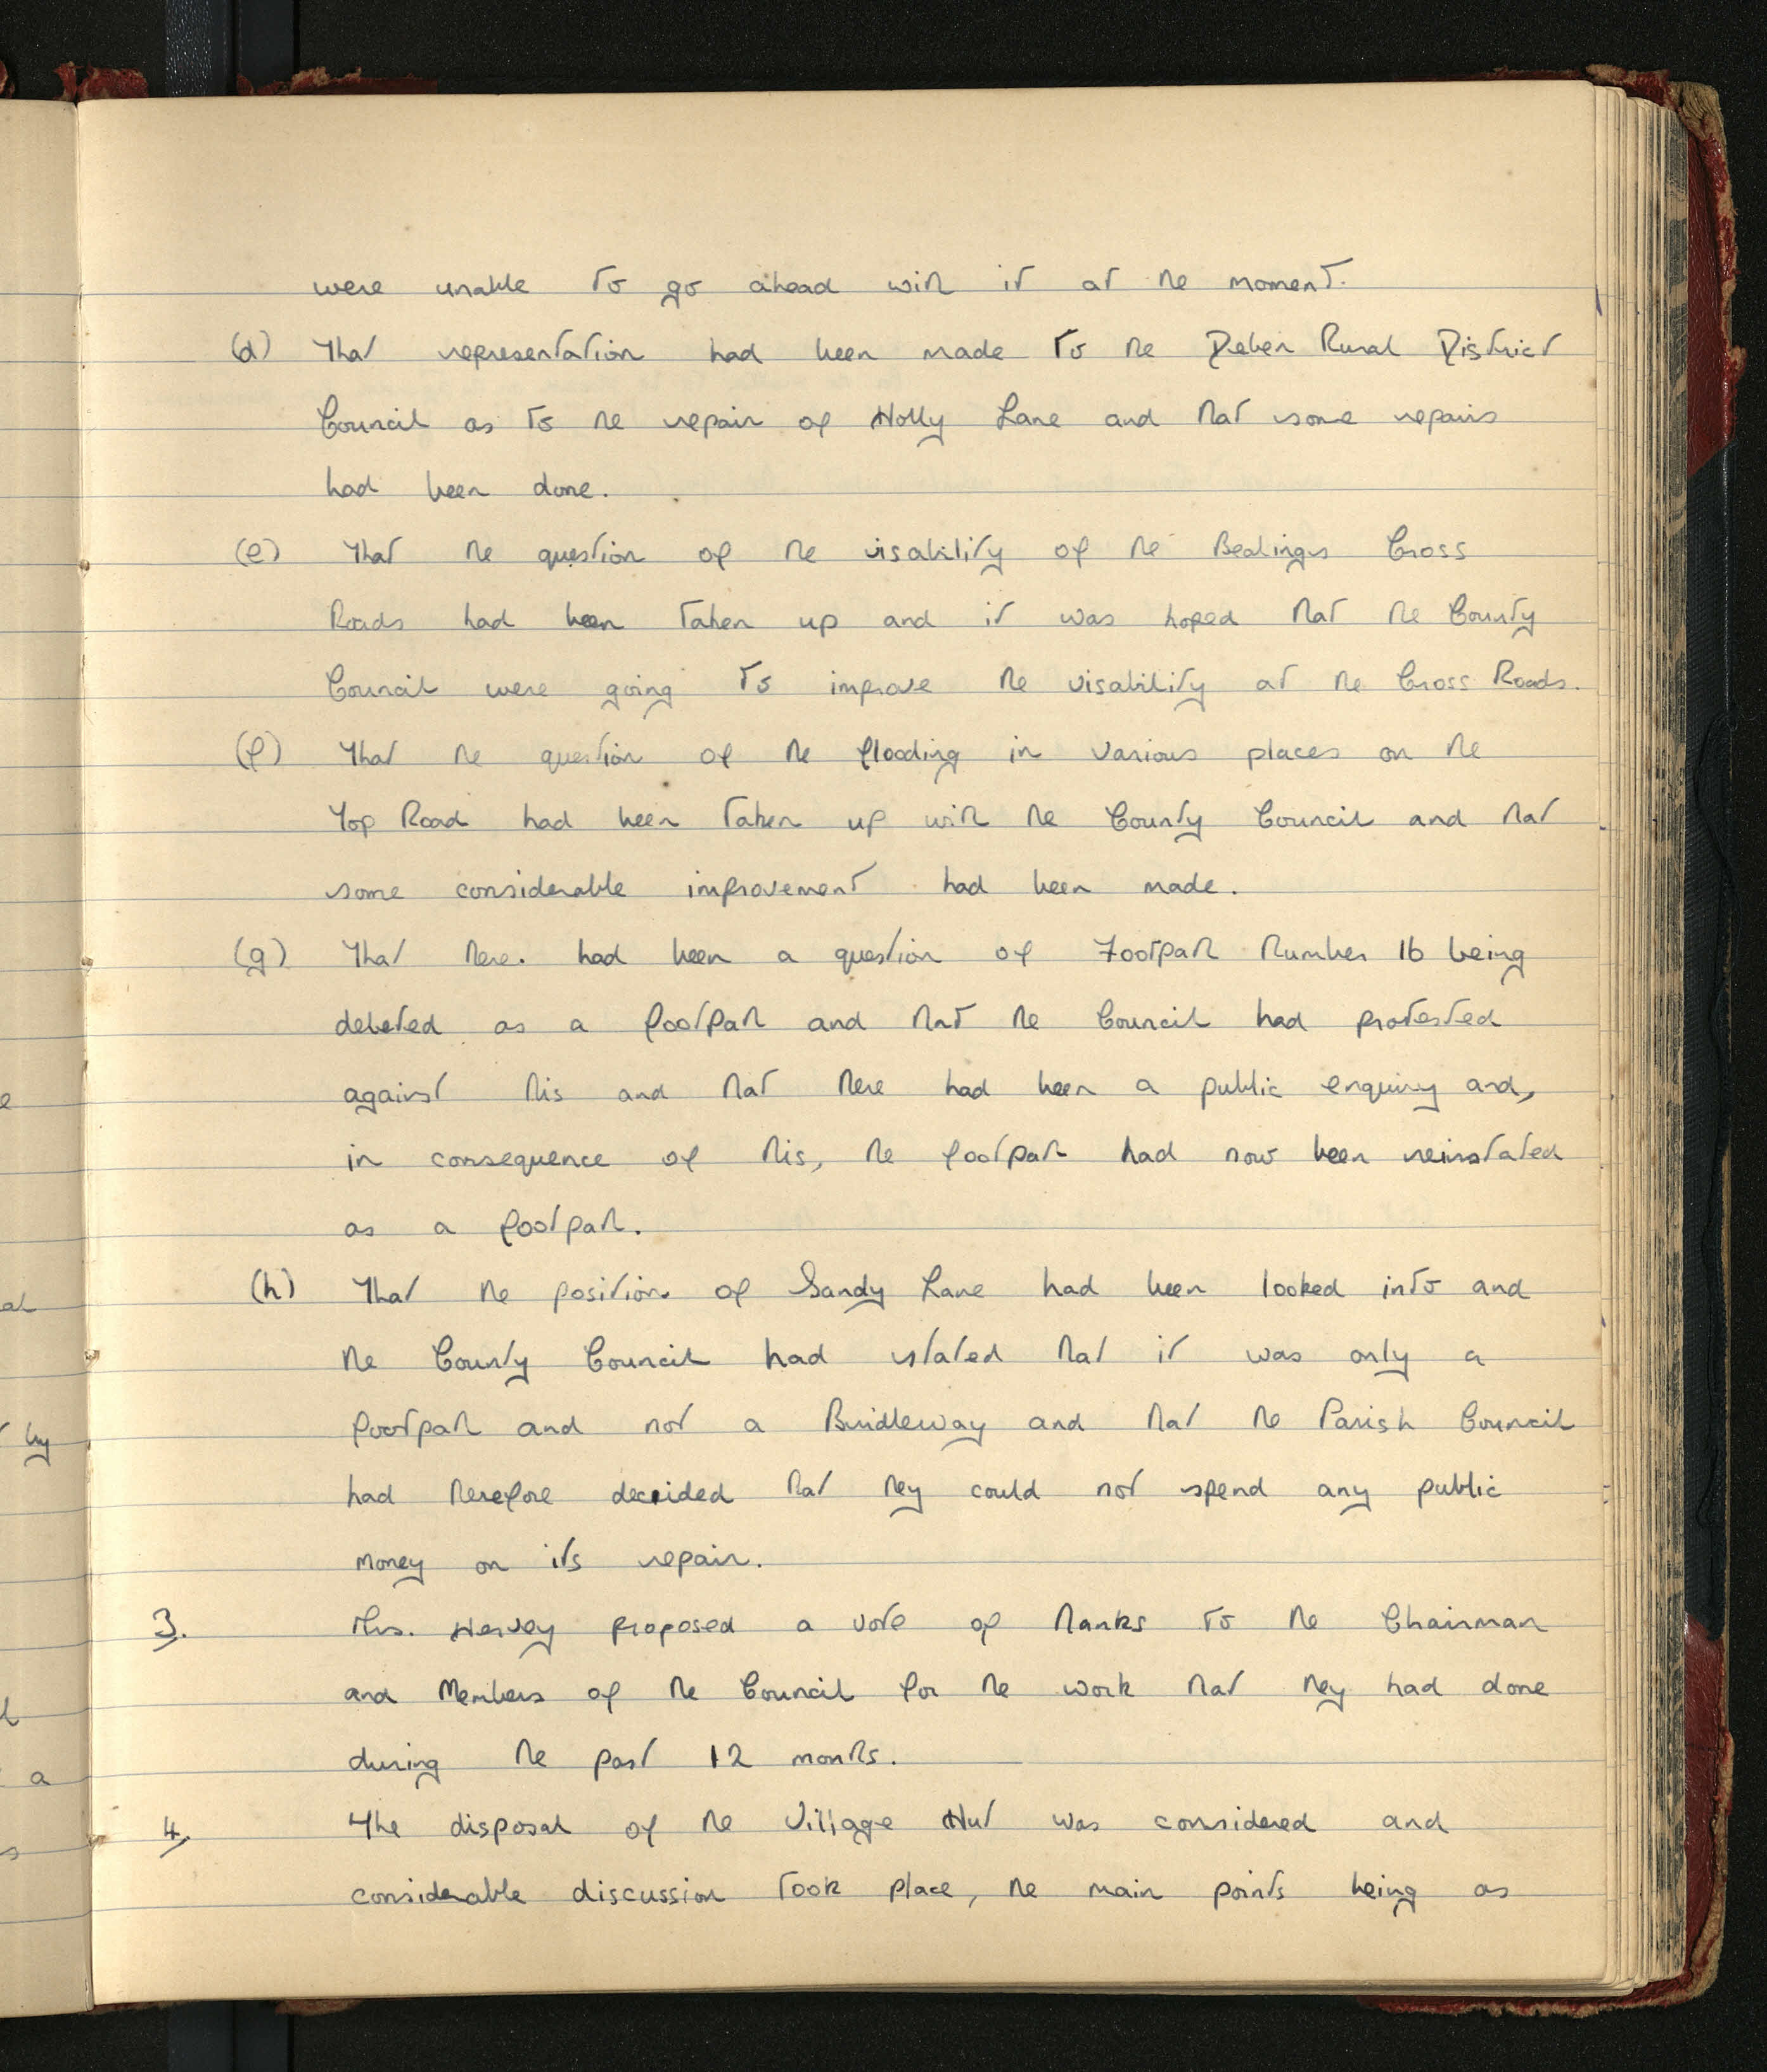 were unable to go ahead with it at the moment.
(d) That representation had been made to the Deben Rural District
Council as to the repair of Holly Lane and that some repairs
had been done.
(e) That the question of the visability of the Bealings Cross
Roads had been taken up and it was hoped that the County
Council were going to improve the visability at the Cross Roads.
(f) That the question of the flooding in various places on the
Top Road had been taken up with the County Council and that
some considerable improvement had been made.
(g) That there had been a question of Footpath Number 16 being
deleted as a footpath and that the Council had protested
against this and that there had been a public enquiry and,
in consequence of this, the footpath had now been reinstated
as a footpath.
(h) That the position of Sandy Lane had been looked into and
the County Council had stated that it was only a
footpath and not a Bridleway and that the Parish Council
had therefore decided that they could not spend any public
money on its repair.
3. Mrs. Hervey proposed a vote of thanks to the Chairman
and Members of the Council for the work that they had done
during the past 12 months.
4. The disposal of the Village Hut was considered and
considerable discussion took place, the main points being as
e
al
by
a
s